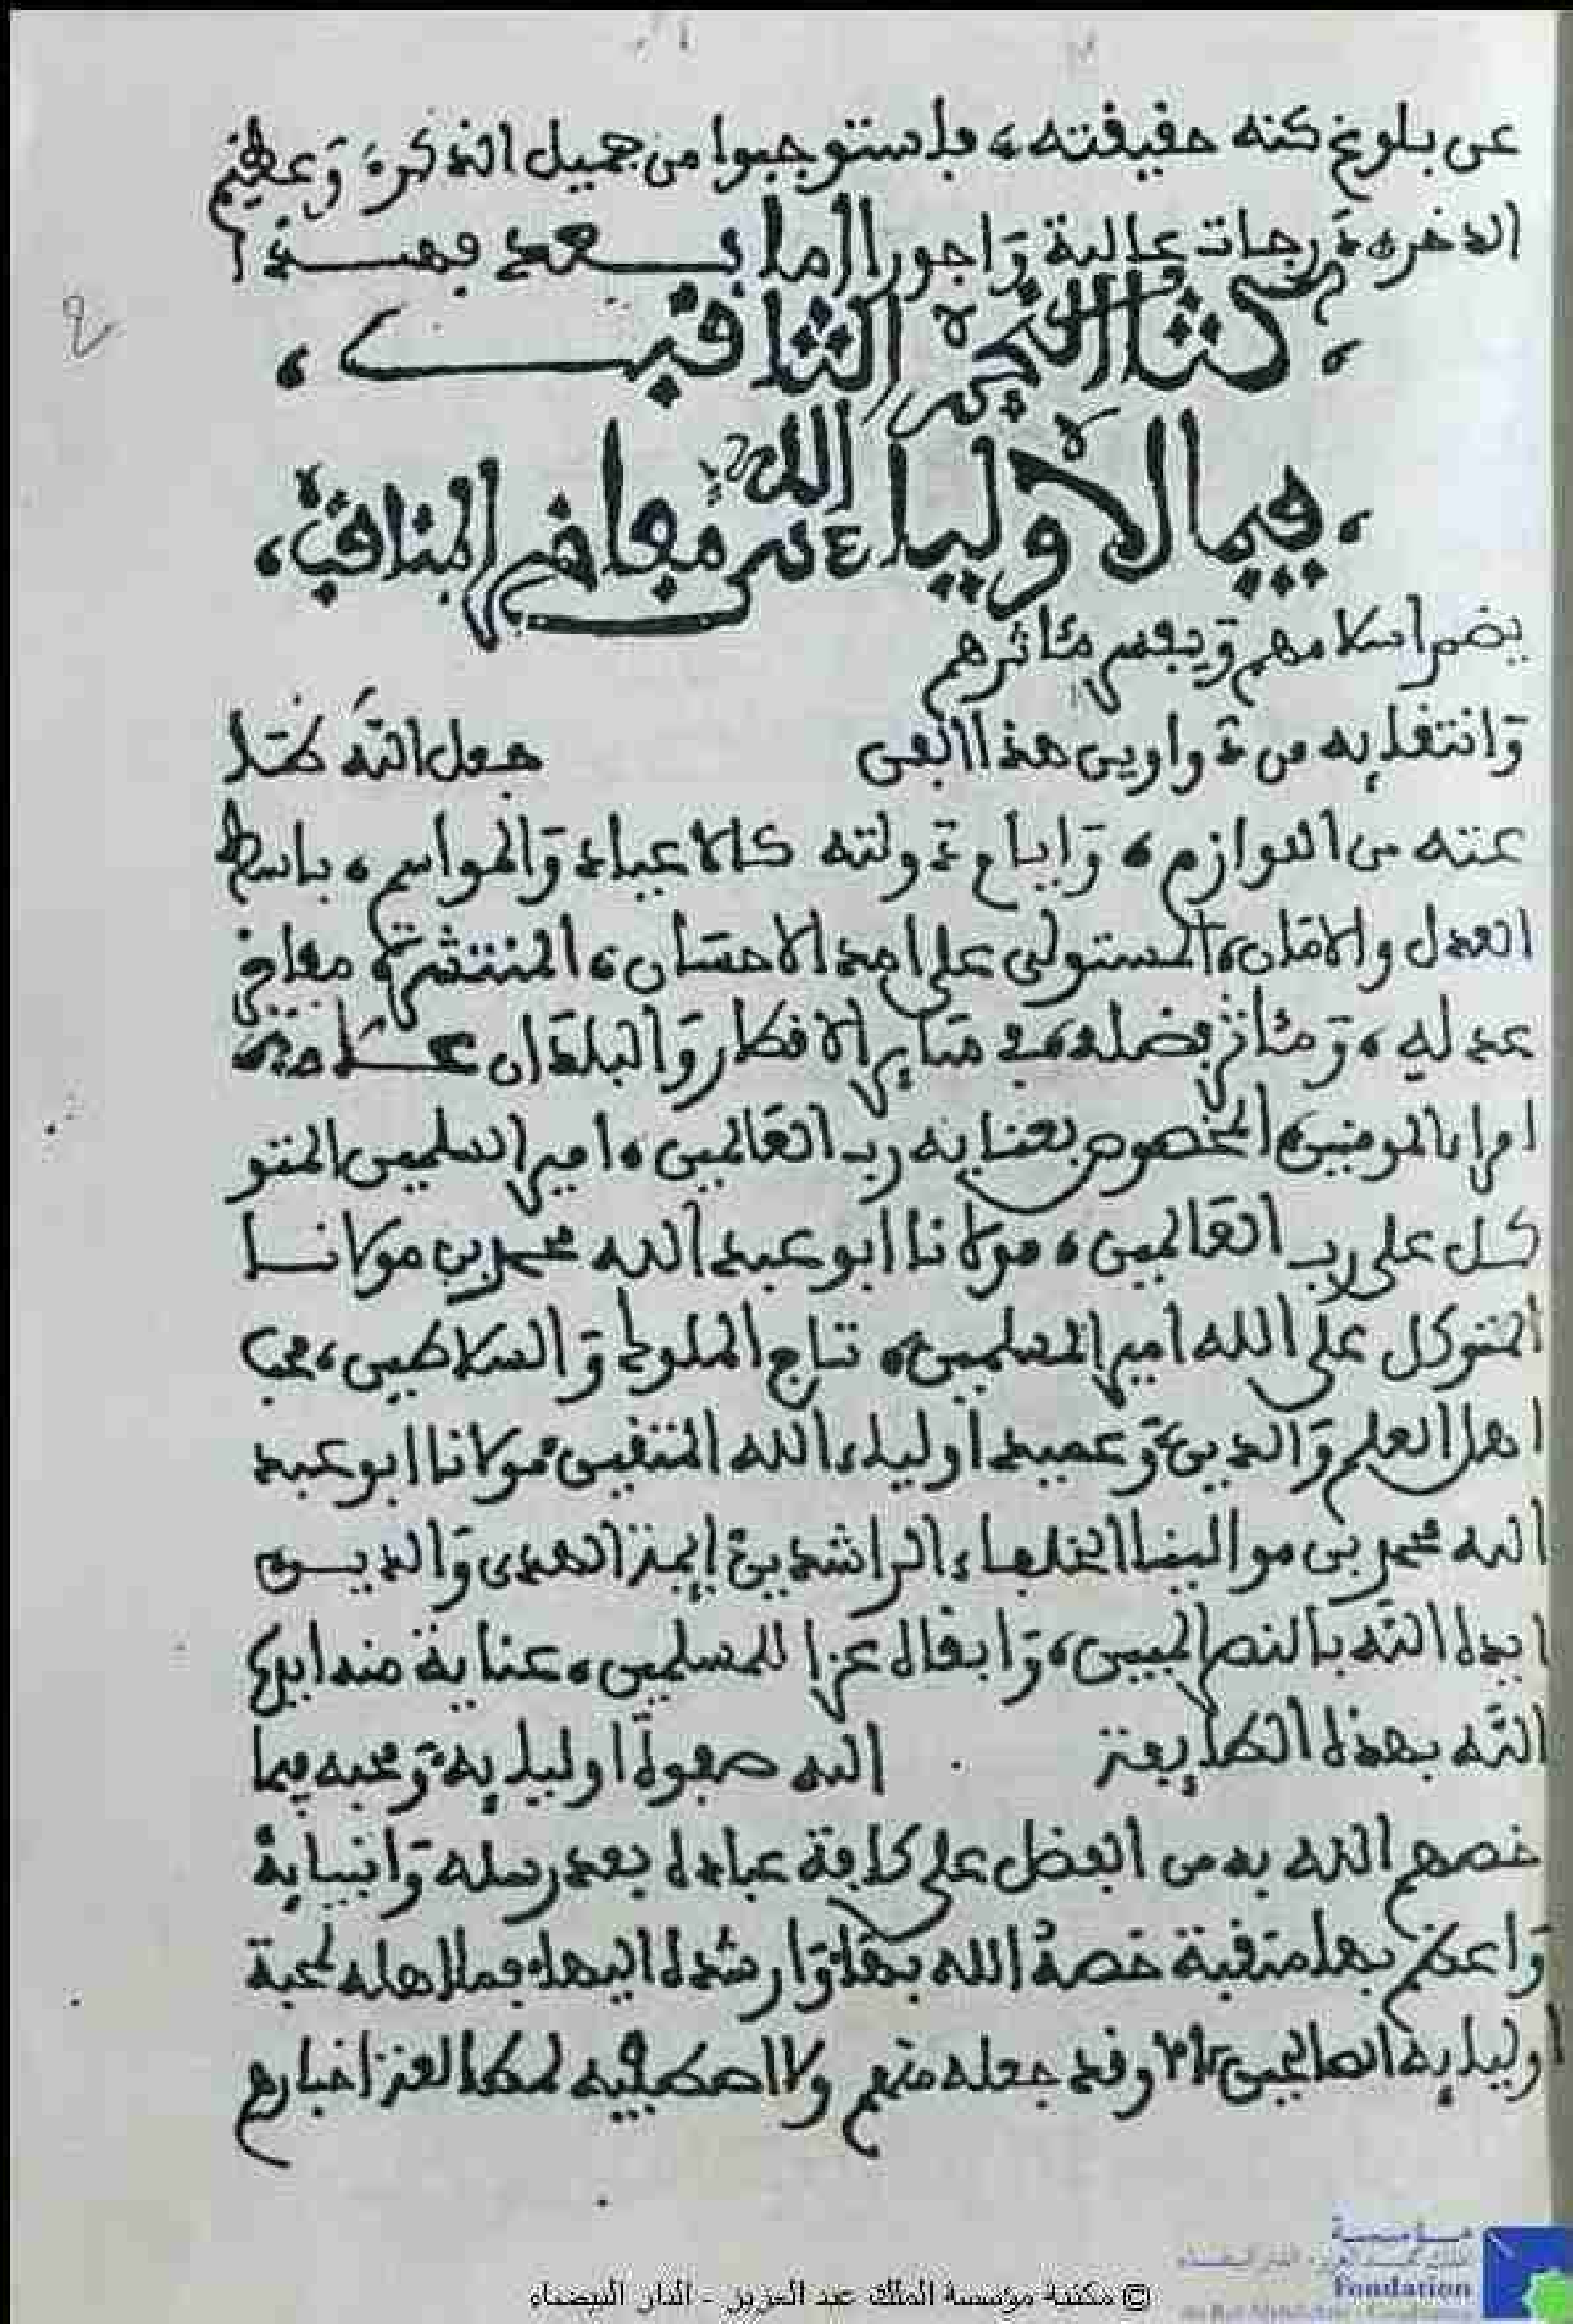 عن بلوغ كنه حقيقته، فاستوجبوا من جميل الذكر، وَعظيم
الذخر، دَرجات عالية وَاجورا اما بعد فهذا
كتاب النجم الثاقب،
، فيما لاولياء الله من مفاخر المناقب،
يضم اسلامهم وَيفسر مئاثرهم
وَانتقايه من دواوين هذا الفن جعل الله
عنه من اللوازم، وَايام دَولته كالاعياد وَالمواسم، باسط
العدل والامان، المستولى على امد الاحسان، المنتشرة مفاخر
عدله، وَمئاثر فضله، في سَاير الاقطار وَالبلدَان
امراء المومنين، المخصوص بعناية رب العَالمين، امير المسلمين المتو
كل على رب العَالمين، مولانا ابو عبد الله محمد بن مولانا
المتوكل على الله امير المسلمين، تاج الملوك وَالسلاطين، محب
اهل العلم وَالدين، وَعميد اولياء الله المتقين، مولانا ابو عبد
الله محمد بن موالينا الخلفاء الراشدين، ايمة الهدى وَالدين
ايده الله بالنصر المبين، وَابقاه عزا للمسلمين، عناية منه ايده
الله بهذه الطايفة الله صفوة اوليايه، وَمحبه فيما
خصهم الله به من الفضل على كافة عباده بعد رسله وَانبيايه
وَاعظم بها منقبة خصهُ الله بها، وَارشده اليها، فما اهله لمحبة
اوليايه الصالحين، الا وقد جعله منهم ولا اصطفيه اخبارهم
© مكتبة مؤسسة الملك عبد العزيز - الدار البيضاء
مؤسسة
Fondation